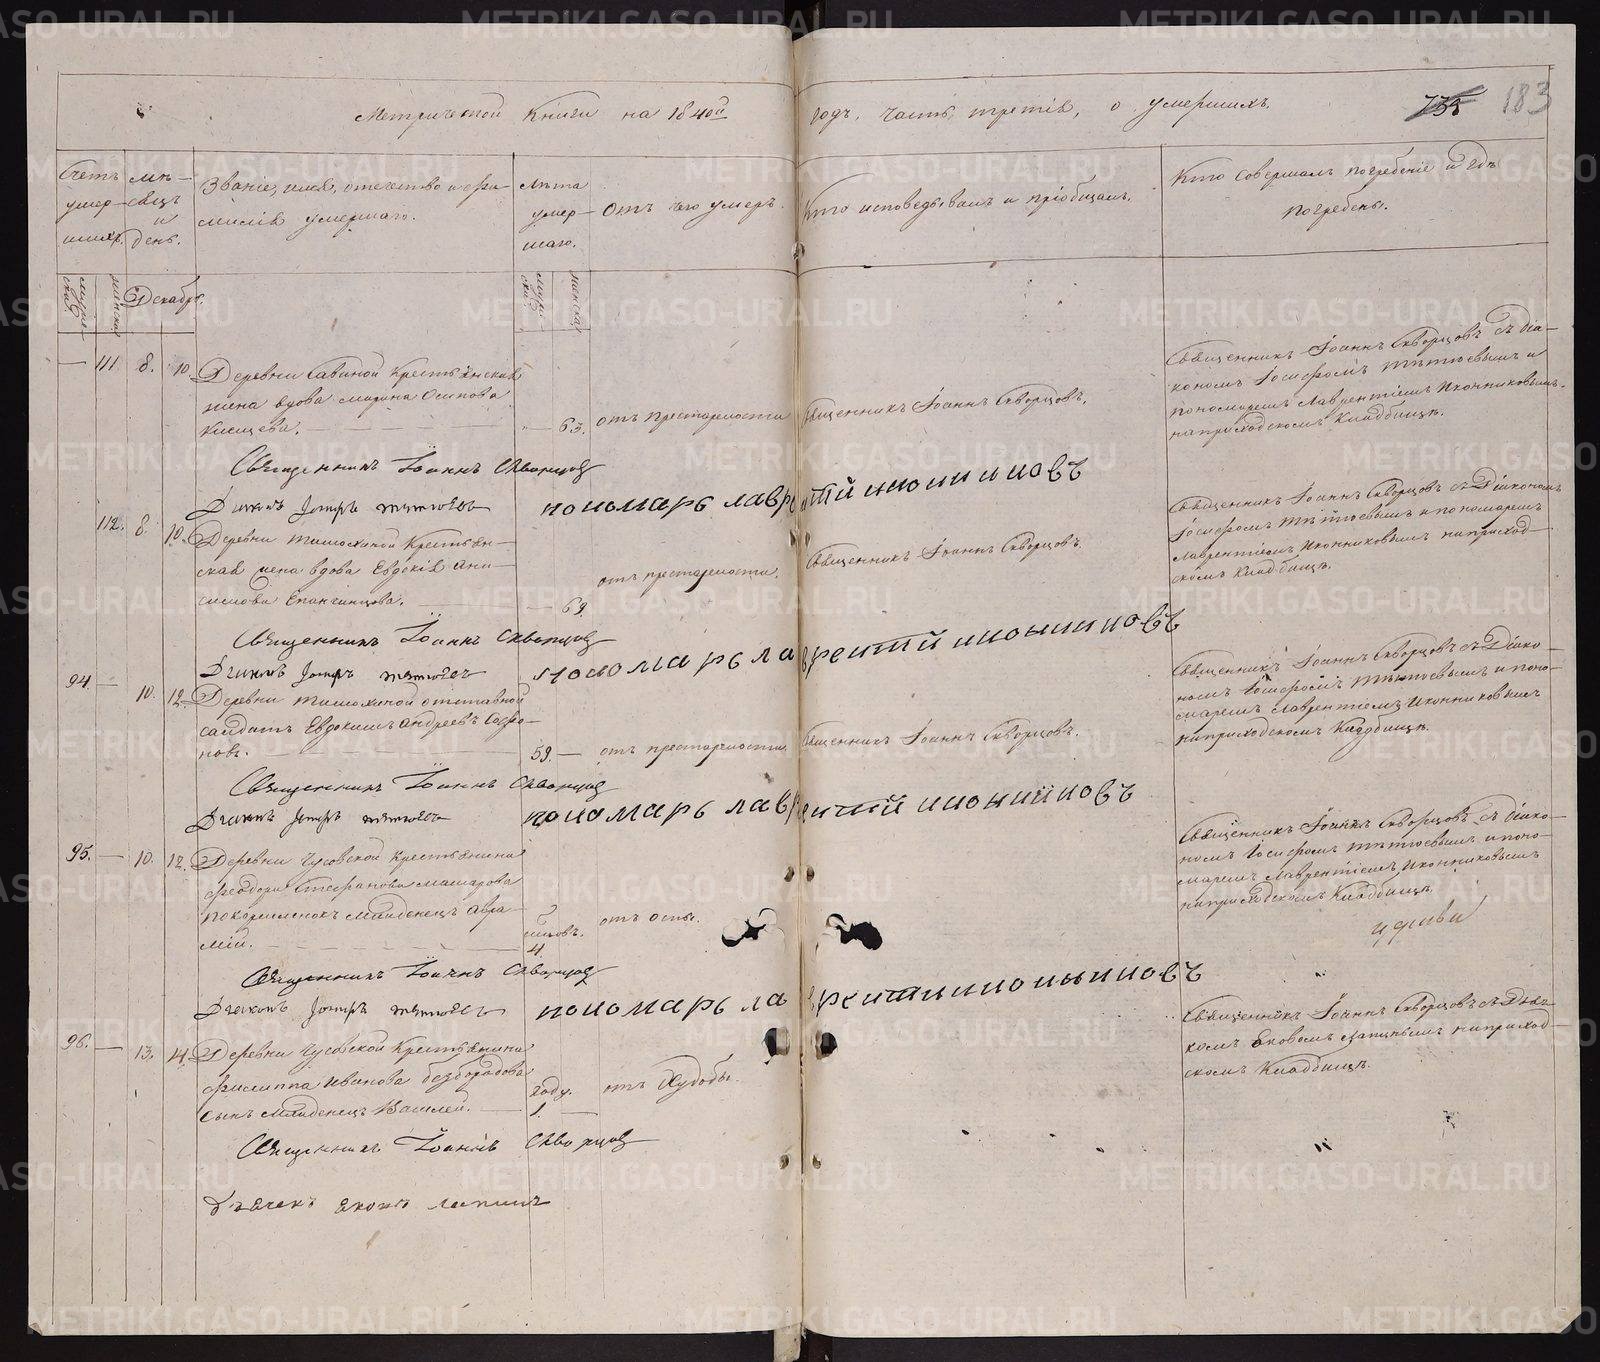 Метрической Книги на 1840й годъ, часть третія, о умершихъ.
735 183
Счетъ умер-шихъ.
мѣ-сяцъ и день.
Званіе, имя, отечество и фа-
милія умершаго.
лѣта умер-шаго.
Отъ чего умеръ.
Кто исповедывалъ и пріобщалъ.
Кто совершалъ погребеніе и гдѣ
погребены.
мужеска женска
Декабрь.
мужеска женска
— 111. 8. 10. Деревни Савиной Крестьянская
жена вдова Марина Осипова
— 63. отъ престарелости Священникъ Іоаннъ Скворцовъ.
Священникъ Іоаннъ Скворцовъ съ діа-
кономъ Іосифомъ и
пономаремъ Лаврентіемъ Иконниковымъ
на приходскомъ Кладбищѣ.
Священникъ Іоаннъ Скворцовъ
Диаконъ пономарь лаврентий иконниковъ
112. 8. 10. Деревни Крестьян-
ская жена вдова Евдокія Они-
симова Епанчинцова.
— 69. отъ престарелости. Священникъ Іоаннъ Скворцовъ.
Священникъ Іоаннъ Скворцовъ съ Діакономъ
Іосифомъ и пономаремъ
Лаврентіемъ Иконниковымъ на приход-
скомъ Кладбищѣ.
Священникъ Іоаннъ Скворцовъ
Диаконъ пономарь лаврентий иконниковъ
94. — 10. 12. Деревни отставной
салдатъ Евдокимъ Андреевъ Сафро-
новъ.
59. — отъ престарелости Священникъ Іоаннъ Скворцовъ.
Священникъ Іоаннъ Скворцовъ съ Діако-
номъ Іосифомъ и поно-
маремъ Лаврентіемъ Иконниковымъ
на приходскомъ Кладбищѣ.
Священникъ Іоаннъ Скворцовъ
Диаконъ пономарь лаврентий иконниковъ
95. — 10. 12. Деревни Чусовской Крестьянина
Феодора Стефанова
младенецъ Авра-
мій.
4 отъ оспы.
Священникъ Іоаннъ Скворцовъ съ діако-
номъ Іосифомъ и поно-
маремъ Лаврентіемъ Иконниковымъ
на приходскомъ Кладбищѣ.
Священникъ Іоаннъ Скворцовъ
Диаконъ пономарь лаврентий иконниковъ
96. — 13. 14. Деревни Чусовской Крестьянина
Филиппа Иванова Безбородова
сынъ младенецъ Василей.
году. 1. — отъ Худобы.
Священникъ Іоаннъ Скворцовъ съ Дьяч-
комъ Яковомъ Лапинымъ на приход-
скомъ Кладбищѣ.
Священникъ Іоаннъ Скворцовъ
Дьячекъ Яковъ Лапинъ
METRIKI.GASO-URAL.RU